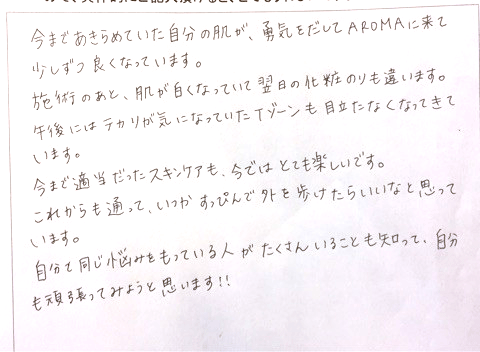 今まであきらめていた自分の肌が、勇気をだしてAROMAに来て
少しずつ良くなっています。
施術のあと、肌が白くなっていて翌日の化粧のりも違います。
午後にはテカリが気になっていたTゾーンも目立たなくなってきて
います。
今まで適当だったスキンケアも、今ではとても楽しいです。
これからも通って、いつかすっぴんで外を歩けたらいいなと思って
います。
自分と同じ悩みをもっている人がたくさんいることも知って、自分
も頑張ってみようと思います!!